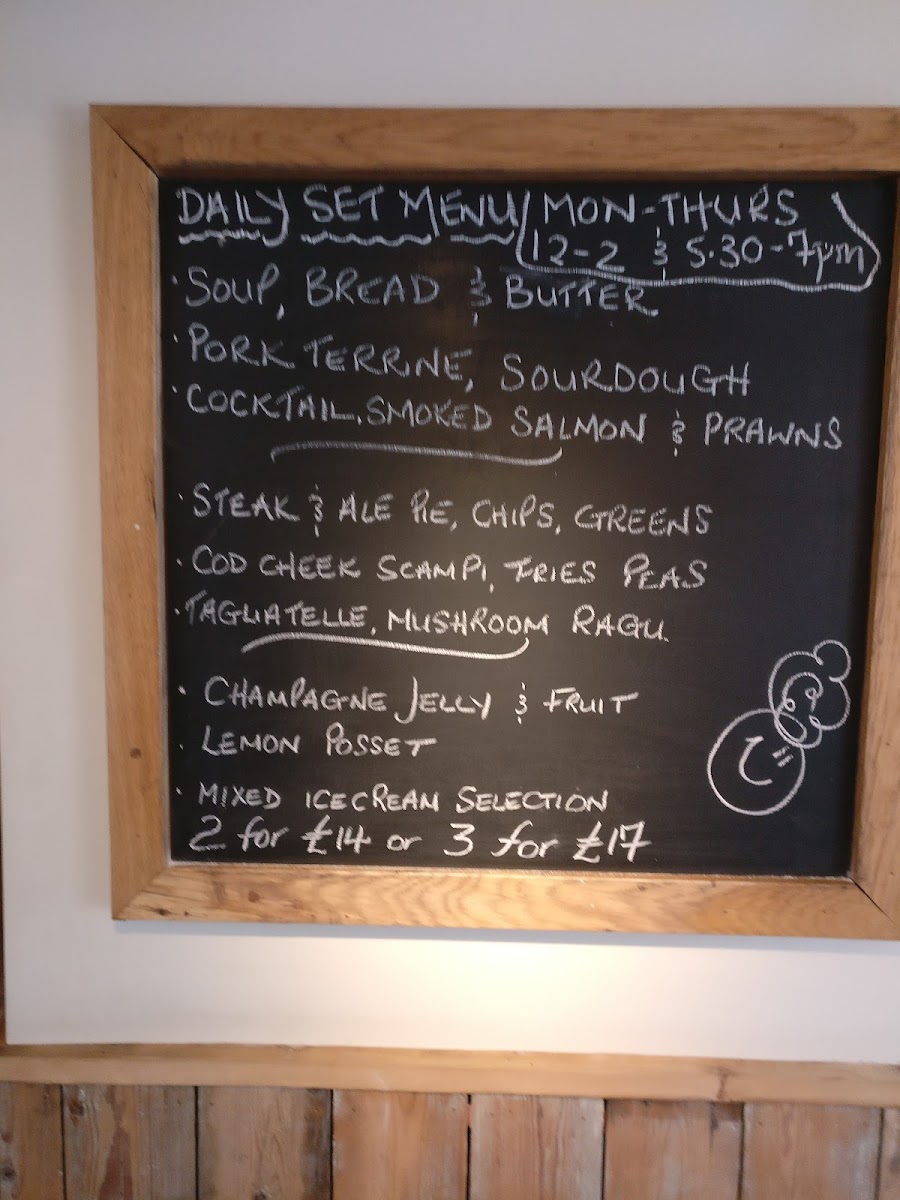 DAILY SET MENU MON-THURS
12-2 & 5.30-7pm
· SOUP, BREAD & BUTTER
· PORK TERRINE, SOURDOUGH
· COCKTAIL, SMOKED SALMON & PRAWNS
· STEAK & ALE PIE, CHIPS, GREENS
· COD CHEEK SCAMPI, FRIES PEAS
· TAGLIATELLE, MUSHROOM RAGU.
· CHAMPAGNE JELLY & FRUIT
· LEMON POSSET
· MIXED ICECREAM SELECTION
2 for £14 or 3 for £17